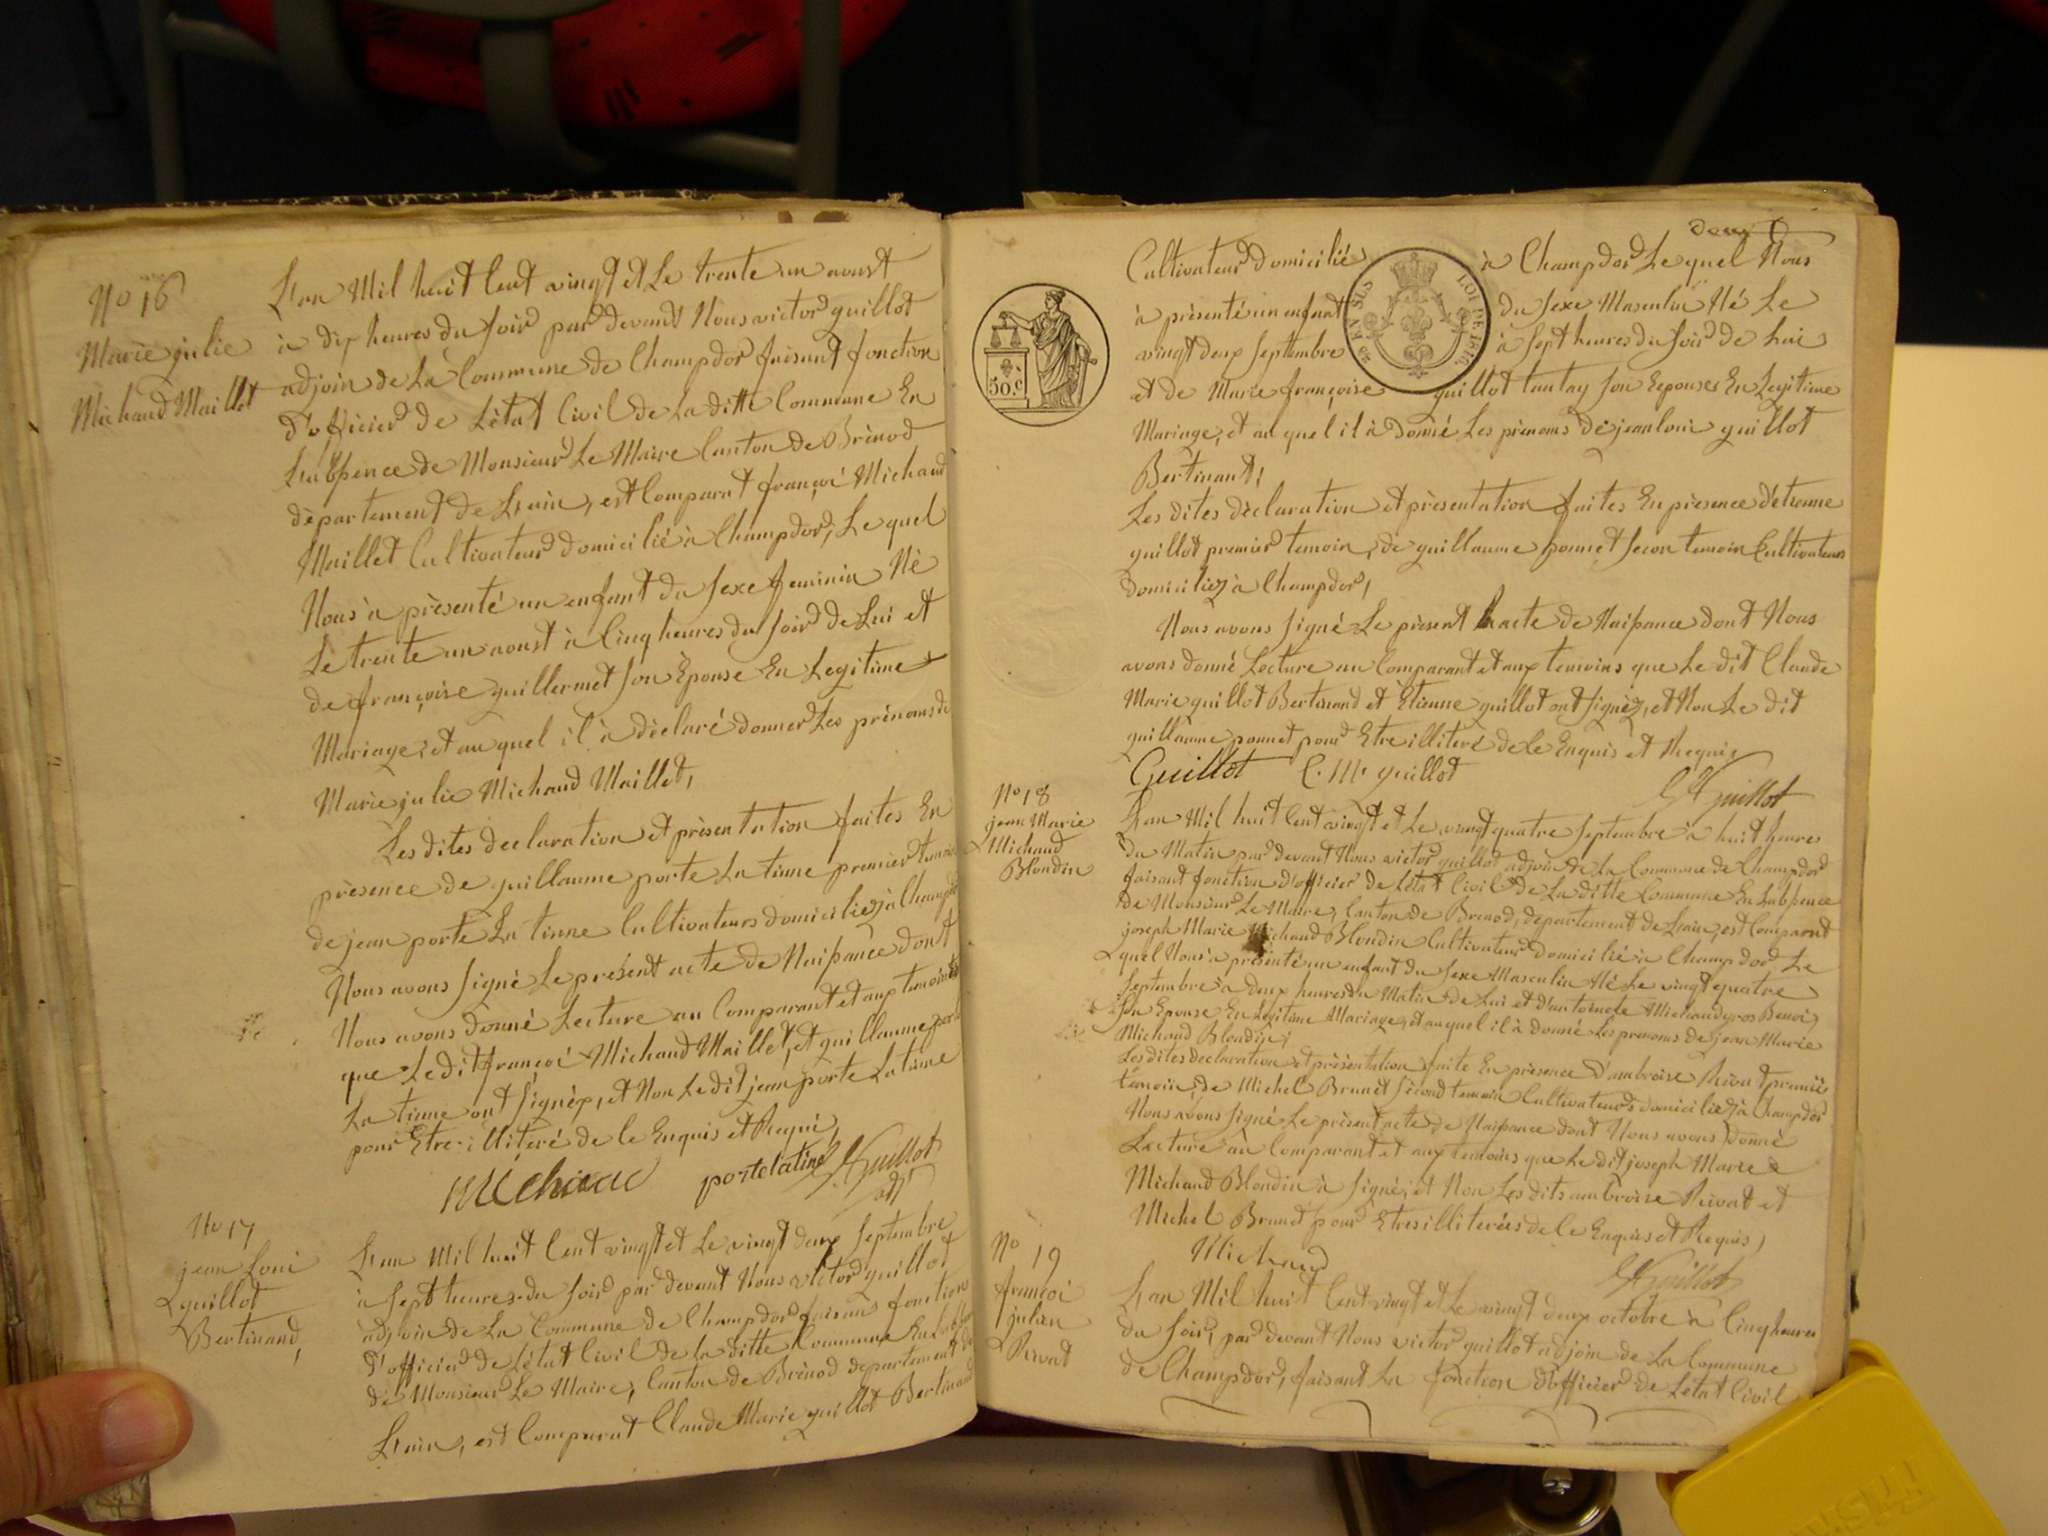 No 16
Marie julie
Michaud Maillet
L'an Mil huit Cent vingt et Le trente un aoust
à dix heures du soir par devant Nous victor guillot
adjoin de La Commune de Champdor faisant fonction
d'officier de L'état Civil de La ditte Commune En
L'absence de Monsieur Le Maire Canton de Brénod
département de L'ain, est Comparut françoi Michaud
Maillet Cultivateur domicilié à Champdor, Le quel
Nous à présenté un enfant du sexe feminin Né
Le trente un aoust à Cinq heures du soir de Lui et
de françoise guillermet son Epouse En Legitime
Mariage, et au quel il à déclaré donner Les prénoms de
Marie julie Michaud Maillet,
Les dites declaration et présentation faites En
présence de guillaume porte La tinne premier temoin
de jean porte La tinne Cultivateurs domiciliez à Champdor
Nous avons signé Le présent acte de Naissance dont
Nous avons donné Lecture au Comparant et aux temoins
que Le dit françoi Michaud Maillet, et guillaume porte
La tinne ont signéz, et Non Le dit jean porte La tinne
pour Etre illiteré de Le Enquis et Requi,
Michaud portelatine Guillot
adj
No 17
jean Loui
guillot
Bertinand,
L'an Mil huit Cent vingt et Le vingt deux septembre
à sept heures du soir par devant Nous victor guillot
adjoin de La Commune de Champdor faisant fonction
d'officier de L'état Civil de la ditte Commune En L'absence
de Monsieur Le Maire, Canton de Brénod departement de
L'ain, est Comparut Claude Marie guillot Bertinand
deux
Cultivateur domicilié à Champdor Le quel Nous
à présenté un enfant du sexe Masculin Né Le
vingt deux septembre à sept heures du soir de Lui
et de Marie françoise guillot tantay son Epouses En Legitime
Mariage, et au quel il à donné Les prénoms de jean loui guillot
Bertinant,
50 c.
LOI DE 1816
Les dites déclaration et présentation faites En présence d'étienne
guillot premier temoin, de guillaume ponnet secon temoin Cultivateurs
domiciliez à Champdor,
Nous avons signé Le présent acte de Naissance dont Nous
avons donné Lecture au Comparant et aux temoins que Le dit Claude
Marie guillot Bertinand et Etienne guillot ont signéz, et Non Le dit
guillaume ponnet pour Etre illiteré de Le Enquis et Requis,
Guillot C. M. guillot
Guillot
No 18
jean Marie
Michaud
Blondin
L'an Mil huit Cent vingt et Le vingt quatre septembre à huit heure
du Matin par devant Nous victor guillot adjoin de La Commune de Champdor
faisant fonction d'officier de L'état Civil de La ditte Commune En L'absence
de Monsieur Le Maire, Canton de Brenod, département de L'ain, est Comparut
joseph Marie Michaud Blondin Cultivateur domicilié à Champdor Le
quel Nous à présenté un enfant du sexe Masculin Né Le vingt quatre
septembre à deux heures du Matin de Lui et d'antoinete Michaud
son Epouse En Legitime Mariage, et au quel il à donné Les prenoms de jean Marie
Michaud Blondin,
Les dites declaration et présentation faite En présence d'ambroise Rivat premier
temoin, de Michel Brunet second temoin Cultivateurs domiciliez à Champdor
Nous avons signé Le présent acte de Naissance dont Nous avons donné
Lecture au Comparant et aux temoins que Le dit joseph Marie
Michaud Blondin à signé, et Non Les dits ambroise Rivat et
Michel Brunet pour Etres illiterées de Le Enquis et Requis,
Michaud
Guillot
No 19
françoi
julien
Rivat
L'an Mil huit Cent vingt et Le vingt deux octobre à Cinq heures
du soir, par devant Nous victor guillot adjoin de La Commune
de Champdor, faisant La fonction d'officier de L'état Civil